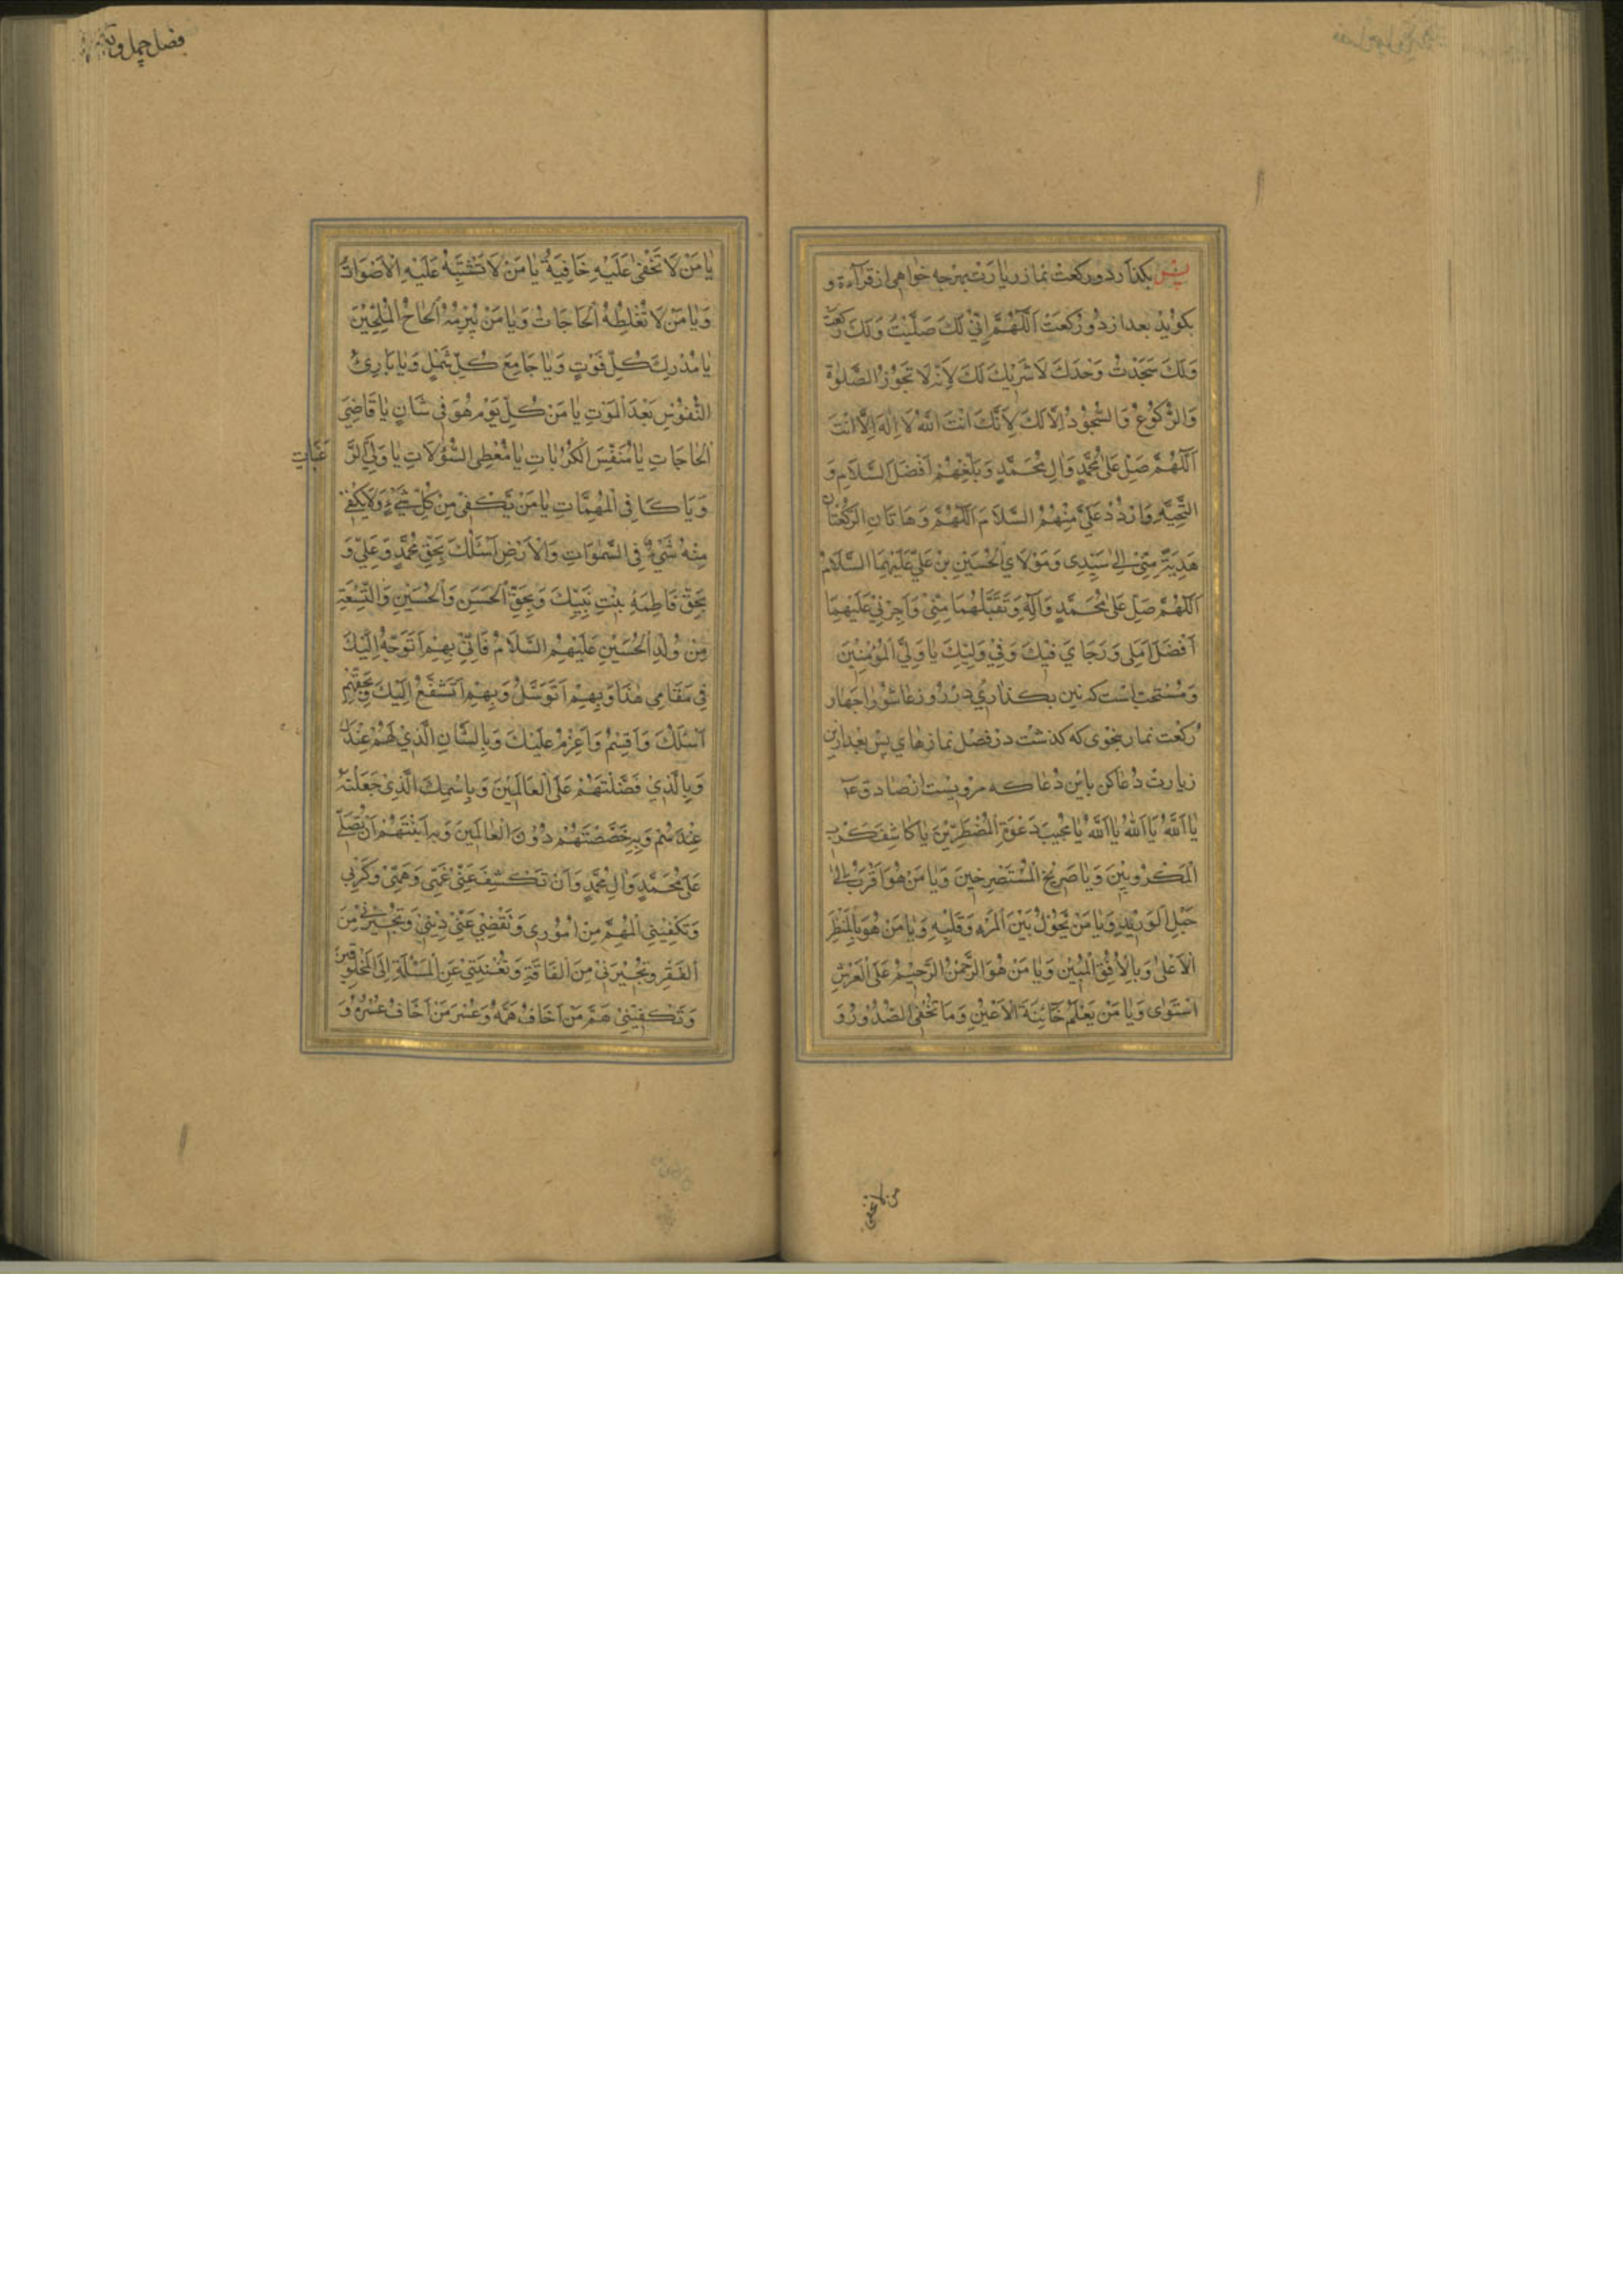 پس بکذارد دو رکعت نماز زیارت بهرچه خواهی از قرآءة و
بکوید بعد از دو رکعت اَللّٰهُمَّ اِنّی لَكَ صَلَّیْتُ وَلَكَ رَکَعْتُ
وَلَكَ سَجَدْتُ وَحْدَكَ لَا شَرِیْكَ لَكَ لِاَنَّهُ لَا تَجُوْزُ الصَّلٰوةُ
وَالرُّکُوْعُ وَالسُّجُوْدُ اِلَّا لَكَ لِاَنَّكَ اَنْتَ اللّٰهُ لَا اِلٰهَ اِلَّا اَنْتَ
اَللّٰهُمَّ صَلِّ عَلیٰ مُحَمَّدٍ وَاٰلِ مُحَمَّدٍ وَبَلِّغْهُمْ اَفْضَلَ السَّلَامِ وَ
التَّحِیَّةِ وَارْدُدْ عَلَیَّ مِنْهُمُ السَّلَامَ اَللّٰهُمَّ وَهَاتَانِ الرَّکْعَتَانِ
هَدِیَّةٌ مِنّیْ اِلیٰ سَیِّدِی وَمَوْلَایَ الْحُسَیْنِ بْنِ عَلِیٍّ عَلَیْهِمَا السَّلَامُ
اَللّٰهُمَّ صَلِّ عَلیٰ مُحَمَّدٍ وَاٰلِهِ وَتَقَبَّلْهُمَا مِنّیْ وَاَجِرْنِیْ عَلَیْهِمَا
اَفْضَلَ اَمَلِی وَرَجَایَ فِیْكَ وَفِیْ وَلِیِّكَ یَا وَلِیَّ الْمُؤْمِنِیْنَ
وَمُسْتَحب است که نین بکذاری در روز عاشورا چهار
رکعت نماز بنحوی که کذشت در فصل نمازهای پس بعد ازین
زیارت دُعا کن باین دُعا که مرویست از صادق ع
یَا اَللّٰهُ یَا اَللّٰهُ یَا اَللّٰهُ یَا مُجِیْبَ دَعْوَةِ الْمُضْطَرِّیْنَ یَا کَاشِفَ کَرْبِ
الْمَکْرُوْبِیْنَ وَیَا صَرِیْخَ الْمُسْتَصْرِخِیْنَ وَیَا مَنْ هُوَ اَقْرَبُ اِلَیَّ
حَبْلِ الْوَرِیْدِ وَیَا مَنْ یَحُوْلُ بَیْنَ الْمَرْءِ وَقَلْبِهِ وَیَا مَنْ هُوَ بِالْمَنْظَرِ
الْاَعْلیٰ وَبِالْاُفُقِ الْمُبِیْنِ وَیَا مَنْ هُوَ الرَّحْمٰنُ الرَّحِیْمُ عَلَی الْعَرْشِ
اسْتَوٰی وَیَا مَنْ یَعْلَمُ خَائِنَةَ الْاَعْیُنِ وَمَا تُخْفِی الصُّدُوْرُ وَ
من لا تخفی
فصل چهل و
یَا مَنْ لَا تَخْفیٰ عَلَیْهِ خَافِیَةٌ یَا مَنْ لَا تَشْتَبِهُ عَلَیْهِ الْاَصْوَاتُ
وَیَا مَنْ لَا تُغَلِّطُهُ الْحَاجَاتُ وَیَا مَنْ لَا یُبْرِمُهُ اِلْحَاحُ الْمُلِحِّیْنَ
یَا مُدْرِكَ کُلِّ فَوْتٍ وَیَا جَامِعَ کُلِّ شَمْلٍ وَیَا بَارِئَ
النُّفُوْسِ بَعْدَ الْمَوْتِ یَا مَنْ کُلَّ یَوْمٍ هُوَ فِی شَانٍ یَا قَاضِیَ
الْحَاجَاتِ یَا مُنَفِّسَ الْکُرُبَاتِ یَا مُعْطِیَ السُّؤُلَاتِ یَا وَلِیَّ الرَّغَبَاتِ
وَیَا کَافِیَ الْمُهِمَّاتِ یَا مَنْ یَکْفِیْ مِنْ کُلِّ شَیْءٍ وَلَا یَکْفِیْ
مِنْهُ شَیْءٌ فِی السَّمٰوَاتِ وَالْاَرْضِ اَسْئَلُكَ بِحَقِّ مُحَمَّدٍ وَعَلِیٍّ وَ
بِحَقِّ فَاطِمَةَ بِنْتِ نَبِیِّكَ وَبِحَقِّ الْحَسَنِ وَالْحُسَیْنِ وَالتِّسْعَةِ
مِنْ وُلْدِ الْحُسَیْنِ عَلَیْهِمُ السَّلَامُ فَاِنّیْ بِهِمْ اَتَوَجَّهُ اِلَیْكَ
فِی مَقَامِی هٰذَا وَبِهِمْ اَتَوَسَّلُ وَبِهِمْ اَتَشَفَّعُ اِلَیْكَ وَبِحَقِّهِمْ
اَسْئَلُكَ وَاُقْسِمُ وَاَعْزِمُ عَلَیْكَ وَبِالشَّانِ الَّذِیْ لَهُمْ عِنْدَكَ
وَبِالَّذِیْ فَضَّلْتَهُمْ عَلَی الْعَالَمِیْنَ وَبِاسْمِكَ الَّذِیْ جَعَلْتَهُ
عِنْدَهُمْ وَبِهِ خَصَّصْتَهُمْ دُوْنَ الْعَالَمِیْنَ وَبِهِ اَبَنْتَهُمْ اَنْ تُصَلِّیَ
عَلیٰ مُحَمَّدٍ وَاٰلِ مُحَمَّدٍ وَاَنْ تَکْشِفَ عَنّیْ غَمّیْ وَهَمّیْ وَکَرْبِی
وَتَکْفِیْنِی الْمُهِمَّ مِنْ اُمُوْرِی وَتَقْضِیْ عَنّیْ دَیْنِیْ وَتُجِیْرَنِیْ مِنَ
الْفَقْرِ وَتُجِیْرَنِیْ مِنَ الْفَاقَةِ وَتُغْنِیَنِیْ عَنِ الْمَسْئَلَةِ اِلَی الْمَخْلُوْقِیْنَ
وَتَکْفِیْنِیْ هَمَّ مَنْ اَخَافُ هَمَّهُ وَعُسْرَ مَنْ اَخَافُ عُسْرَهُ وَ